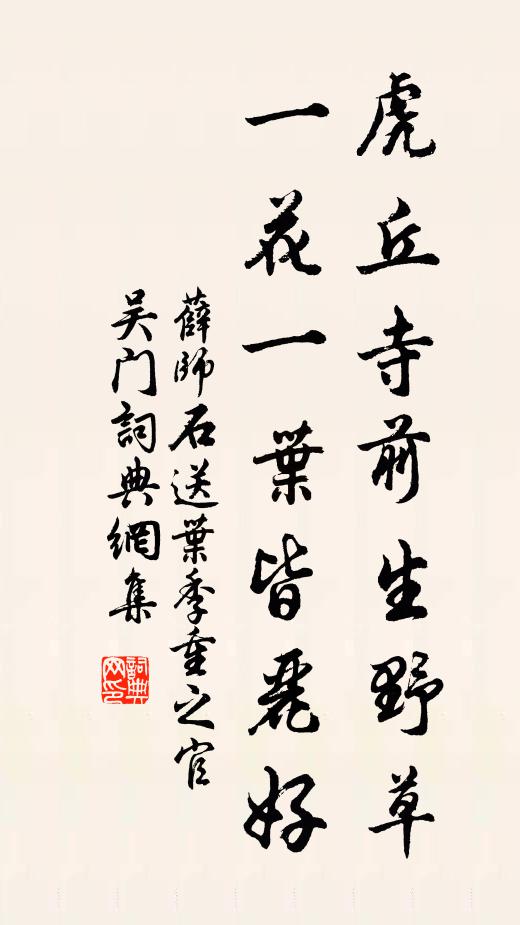 虎丘寺前生野草
一花一葉皆麗好
薛師石送葉季重之官
吳門詞典網集
詞典网印